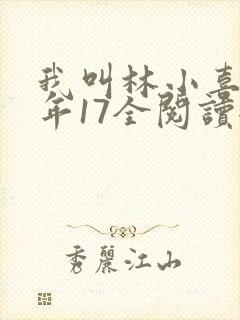 我叫林小喜
年17全閱讀
秀麗江山